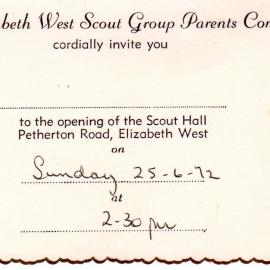 beth West Scout Group Parents Com
cordially invite you
to the opening of the Scout Hall
Petherton Road, Elizabeth West
on
Sunday 25-6-72
at
2-30 pm